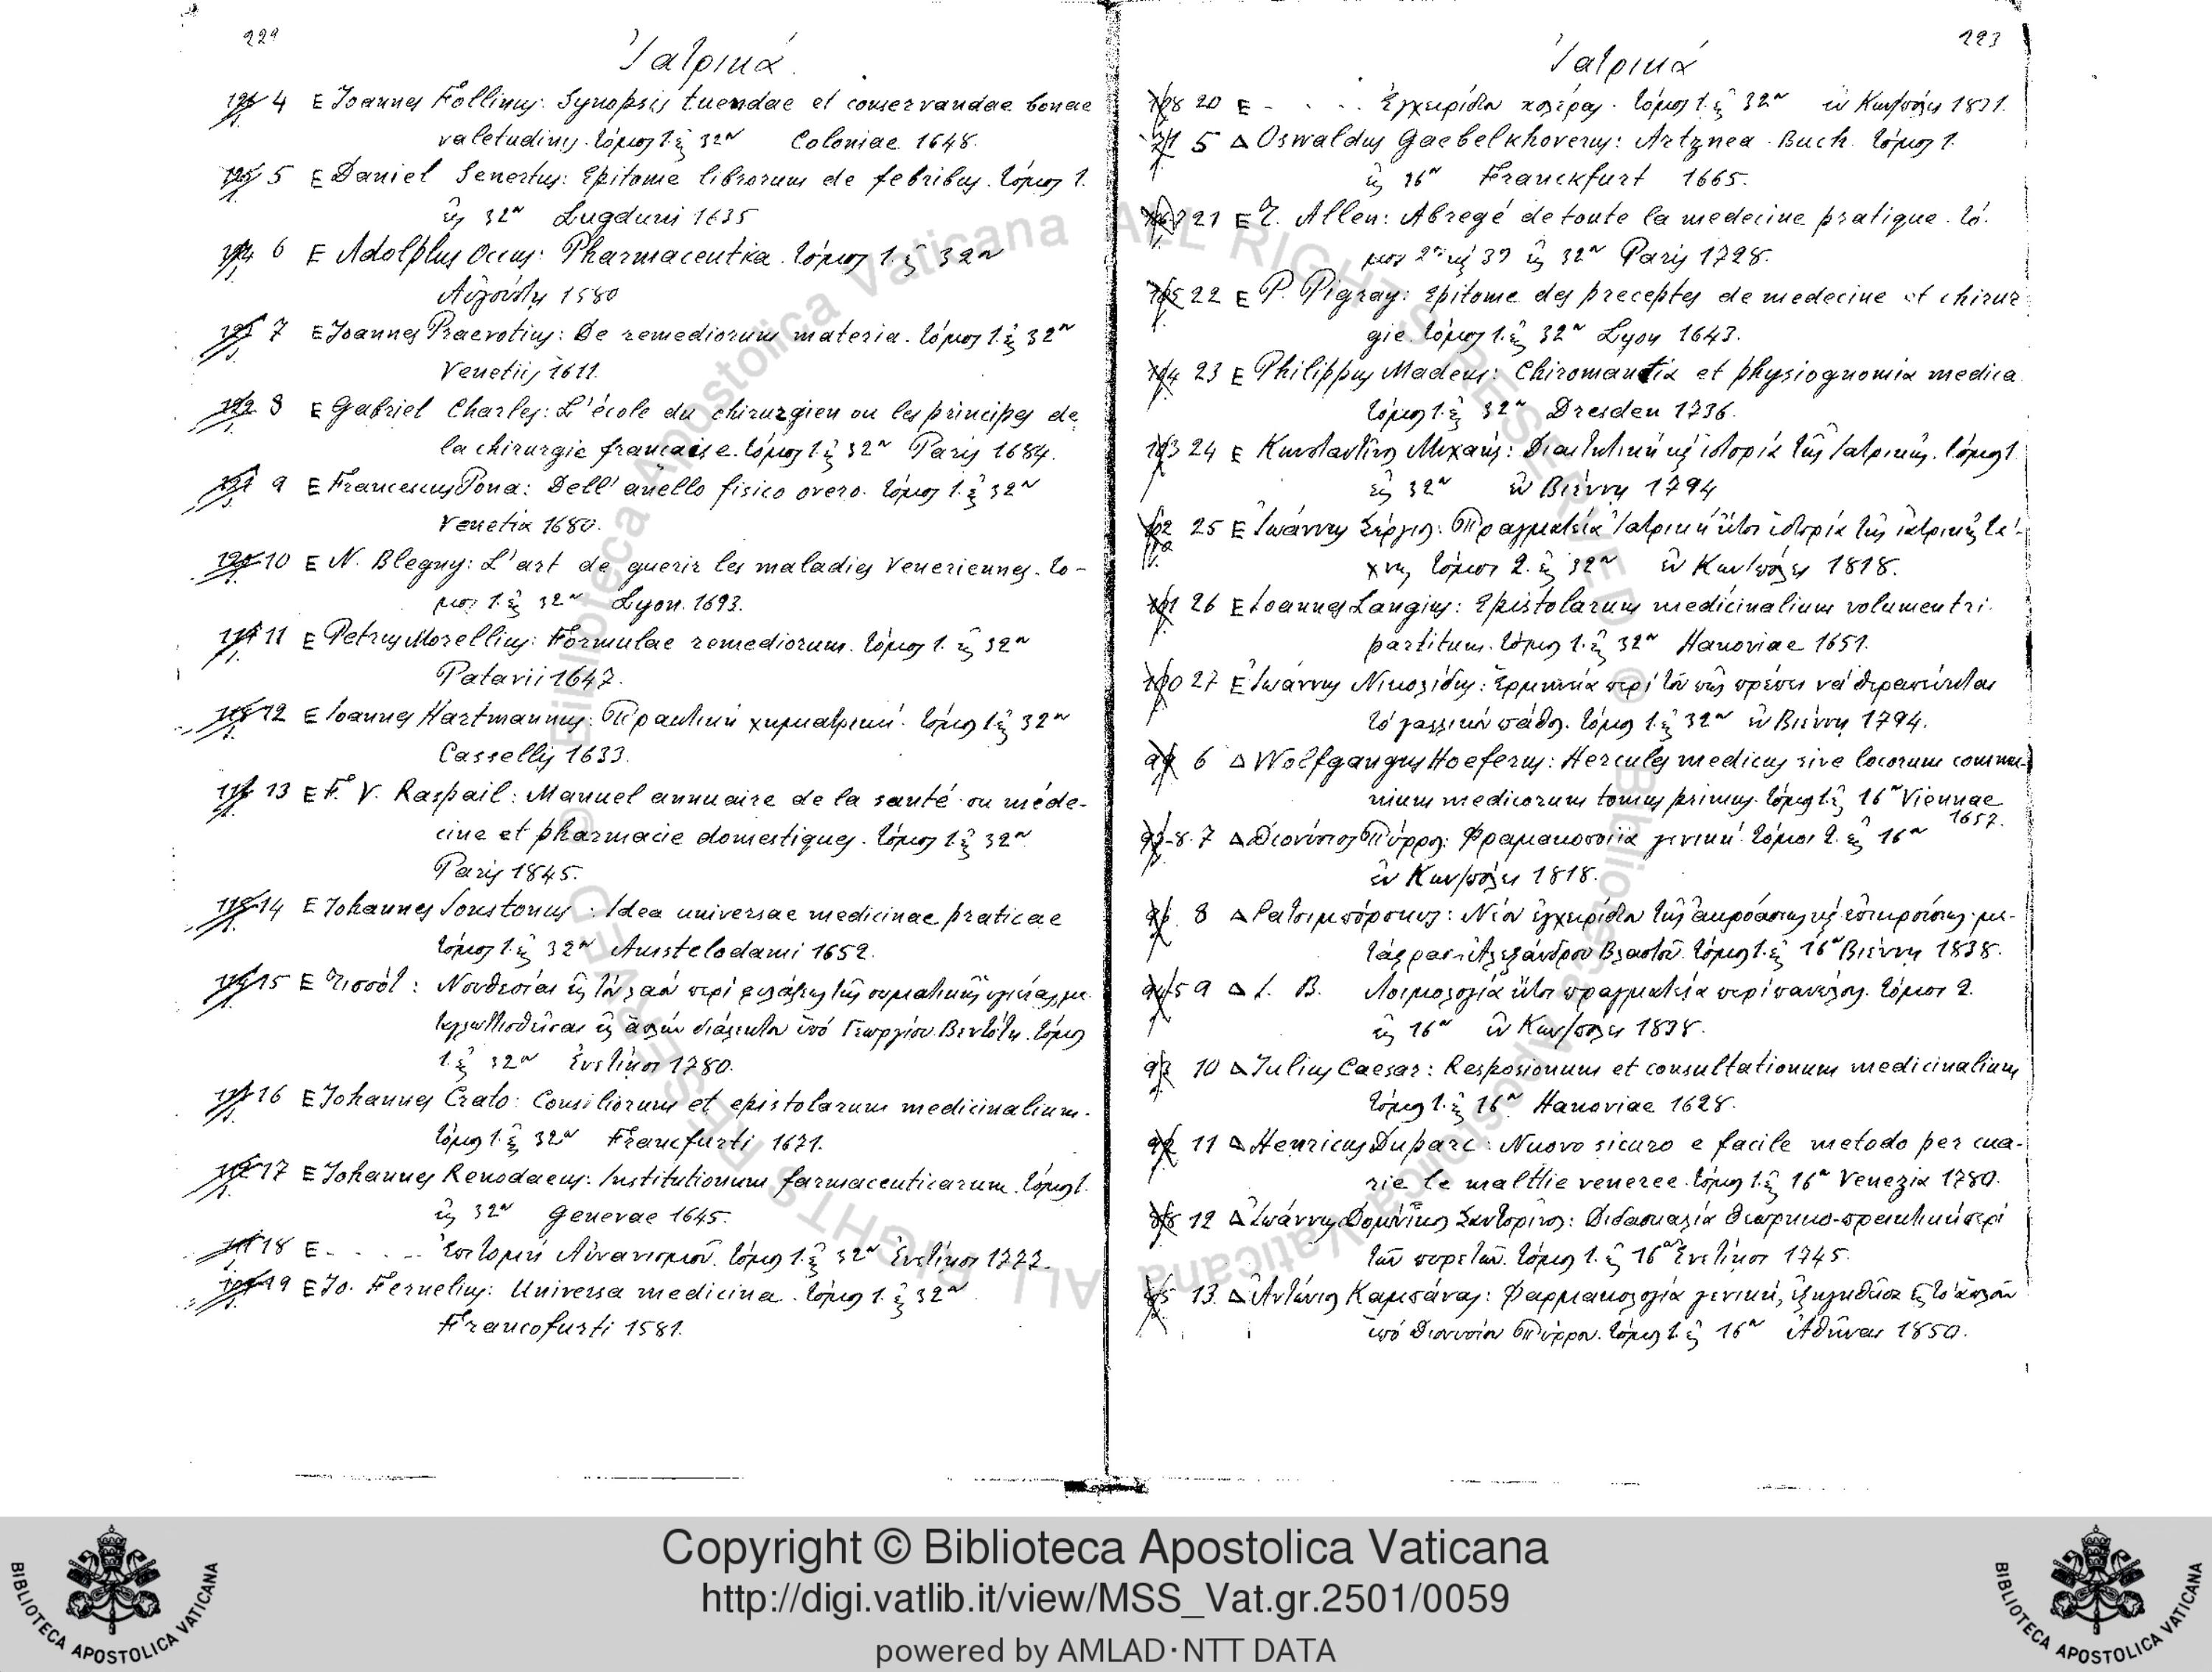 222
Ἰατρικά
4 Ε Ioannes Follinus: Synopsis tuendae et conservandae bonae
valetudinis. τόμος 1. εἰς 32ον Coloniae 1648.
5 Ε Daniel Senertus: Epitome librorum de febribus. τόμος 1.
εἰς 32ον Lugduni 1635
6 Ε Adolphus Occus: Pharmaceutica. τόμος 1. εἰς 32ον
Αὐγούστῃ 1580
7 Ε Ioannes Praevotius: De remediorum materia. τόμος 1. εἰς 32ον
Venetiis 1611.
8 Ε Gabriel Charles: L'école du chirurgien ou les principes de
la chirurgie française. τόμος 1. εἰς 32ον Paris 1684.
9 Ε Francescus Pona: Dell' anello fisico overo. τόμος 1. εἰς 32ον
Venetia 1680.
10 Ε N. Blegny: L'art de guerir les maladies Veneriennes. τό-
μος 1. εἰς 32ον Lyon. 1693.
11 Ε Petrus Morellius: Formulae remediorum. τόμος 1. εἰς 32ον
Patavii 1647.
12 Ε Ioannes Hartmannus: Πρακτική χυμιατρική. τόμος 1. εἰς 32ον
Cassellis 1633.
13 Ε F. V. Raspail: Manuel annuaire de la santé ou méde-
cine et pharmacie domestiques. τόμος 1. εἰς 32ον
Paris 1845.
14 Ε Iohannes Ionstonus: Idea universae medicinae praticae
τόμος 1. εἰς 32ον Amstelodami 1652.
15 Ε Τισσότ: Νουθεσίαι εἰς τόν λαόν περί φυλάξεως τῆς σωματικῆς ὑγιείας με-
ταγλωττισθεῖσαι εἰς ἁπλῆν διάλεκτον ὑπό Γεωργίου Βεντότη. τόμος
1. εἰς 32ον Ἐνετίησι 1780.
16 Ε Iohannes Crato: Consiliorum et epistolarum medicinalium.
τόμος 1. εἰς 32ον Francfurti 1671.
17 Ε Iohannes Renodaeus: Institutionum farmaceuticarum. τόμος 1.
εἰς 32ον Genevae 1645.
18 Ε - . . . - Ἐπιτομή Αὐνανισμοῦ. τόμος 1. εἰς 32ον Ἐνετίησι 1777.
19 Ε Io. Fernelius: Universa medicina. τόμος 1. εἰς 32ον
Francofurti 1581.
223
Ἰατρικά
20 Ε - . . . Ἐγχειρίδιον χολέρας. τόμος 1. εἰς 32ον ἐν Κων/πόλει 1831.
5 Δ Oswaldus Gaebelkhoverus: Artznea . Buch. τόμος 1.
εἰς 16ον Franckfurt 1665.
21 Ε Allen: Abregé de toute la medecine pratique. τό-
μοι 2ος καί 3ος εἰς 32ον Paris 1728.
22 Ε P. Pigray: Epitome des preceptes de medecine et chirur-
gie. τόμος 1. εἰς 32ον Lyon 1643.
23 Ε Philippus Madeus: Chiromantia et physiognomia medica
τόμος 1. εἰς 32ον Dresden 1736.
24 Ε Κωνσταντῖνος Μιχαήλ: Διαιτητική καί ἱστορία τῆς Ἰατρικῆς. τόμος 1.
εἰς 32ον ἐν Βιέννῃ 1794
25 Ε Ἰωάννης Σέργιος: Πραγματεία Ἰατρική ἤτοι ἱστορία τῆς ἰατρικῆς τέ-
χνης τόμοι 2. εἰς 32ον ἐν Κων/πόλει 1818.
26 Ε Ioannes Langius: Epistolarum medicinalium volumen tri-
partitum. τόμος 1. εἰς 32ον Hanoviae 1651.
27 Ε Ἰωάννης Νικολίδης: Ἑρμηνεία περί τοῦ πῶς πρέπει νά θεραπεύεται
τό γαλλικόν πάθος. τόμος 1. εἰς 32ον ἐν Βιέννῃ 1794.
6 Δ Wolfgangus Hoeferus: Hercules medicus sive locorum commu-
nium medicorum tomus primus. τόμος 1. εἰς 16ον Viennae
1657.
7 Δ Διονύσιος Πύρρος: Φραμακοποιία γενική. τόμοι 2. εἰς 16ον
ἐν Κων/πόλει 1818.
8 Δ Ρατσιμπόρσκης: Νέον ἐγχειρίδιον τῆς ἀκροάσεως καί ἐπικρούσεως με-
τάφρασις Ἀλεξάνδρου Βλαστοῦ. τόμος 1. εἰς 16ον Βιέννῃ 1838.
9 Δ Ι. Β. Λοιμολογία ἤτοι πραγματεία περί πανώλης. τόμοι 2.
εἰς 16ον ἐν Κων/πόλει 1838.
10 Δ Iulius Caesar: Resposionum et consultationum medicinalium
τόμος 1. εἰς 16ον Hanoviae 1628.
11 Δ Henricus Duparc: Nuovo sicuro e facile metodo per cua-
rie le malttie veneree. τόμος 1. εἰς 16ον Venezia 1780.
12 Δ Ἰωάννης Δομήνικος Σαντορῖνος: Διδασκαλία θεωρηκο-πρακτική περί
τῶν πυρετῶν. τόμος 1. εἰς 16ον Ἐνετίησι 1745.
13. Δ Ἀντώνιος Καμπάνας: Φαρμακολογία γενική, ἐξηγηθεῖσα εἰς τό ἁπλοῦν
ὑπό Διονυσίου Πύρρου. τόμος 1. εἰς 16ον Ἀθῆναι 1850.
Copyright © Biblioteca Apostolica Vaticana
http://digi.vatlib.it/view/MSS_Vat.gr.2501/0059
powered by AMLAD·NTT DATA
BIBLIOTECA APOSTOLICA VATICANA
BIBLIOTECA APOSTOLICA VATICANA